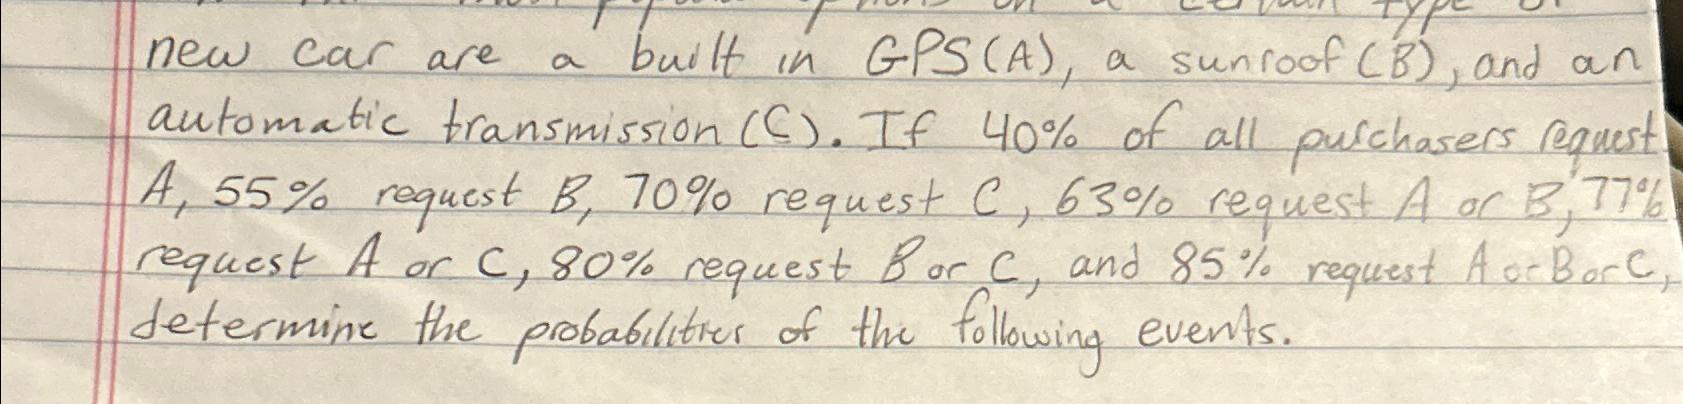 new car are a built in GPS(A), a sunroof (B), and an
automatic transmission (C). If 40% of all purchasers request
A, 55% request B, 70% request C, 63% request A or B, 77%
request A or C, 80% request B or C, and 85% request A or B or C,
determine the probabilities of the following events.